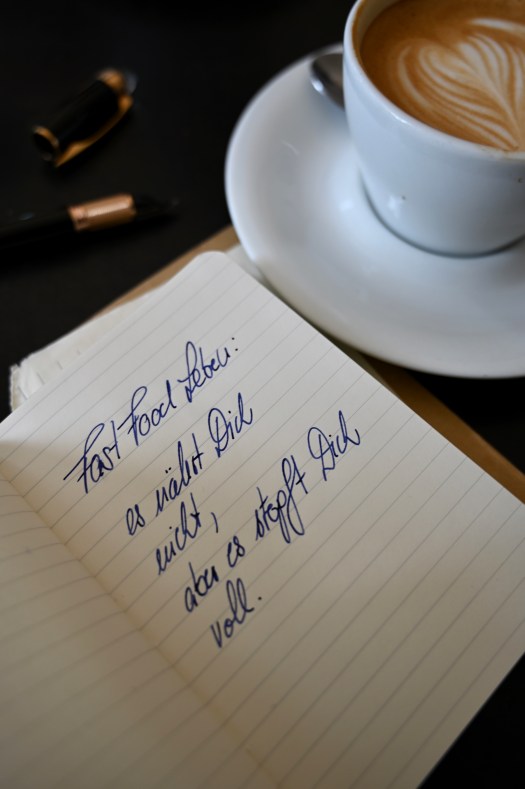 Fast Food Leben:
es nährt Dich
nicht,
aber es stopft Dich
voll.